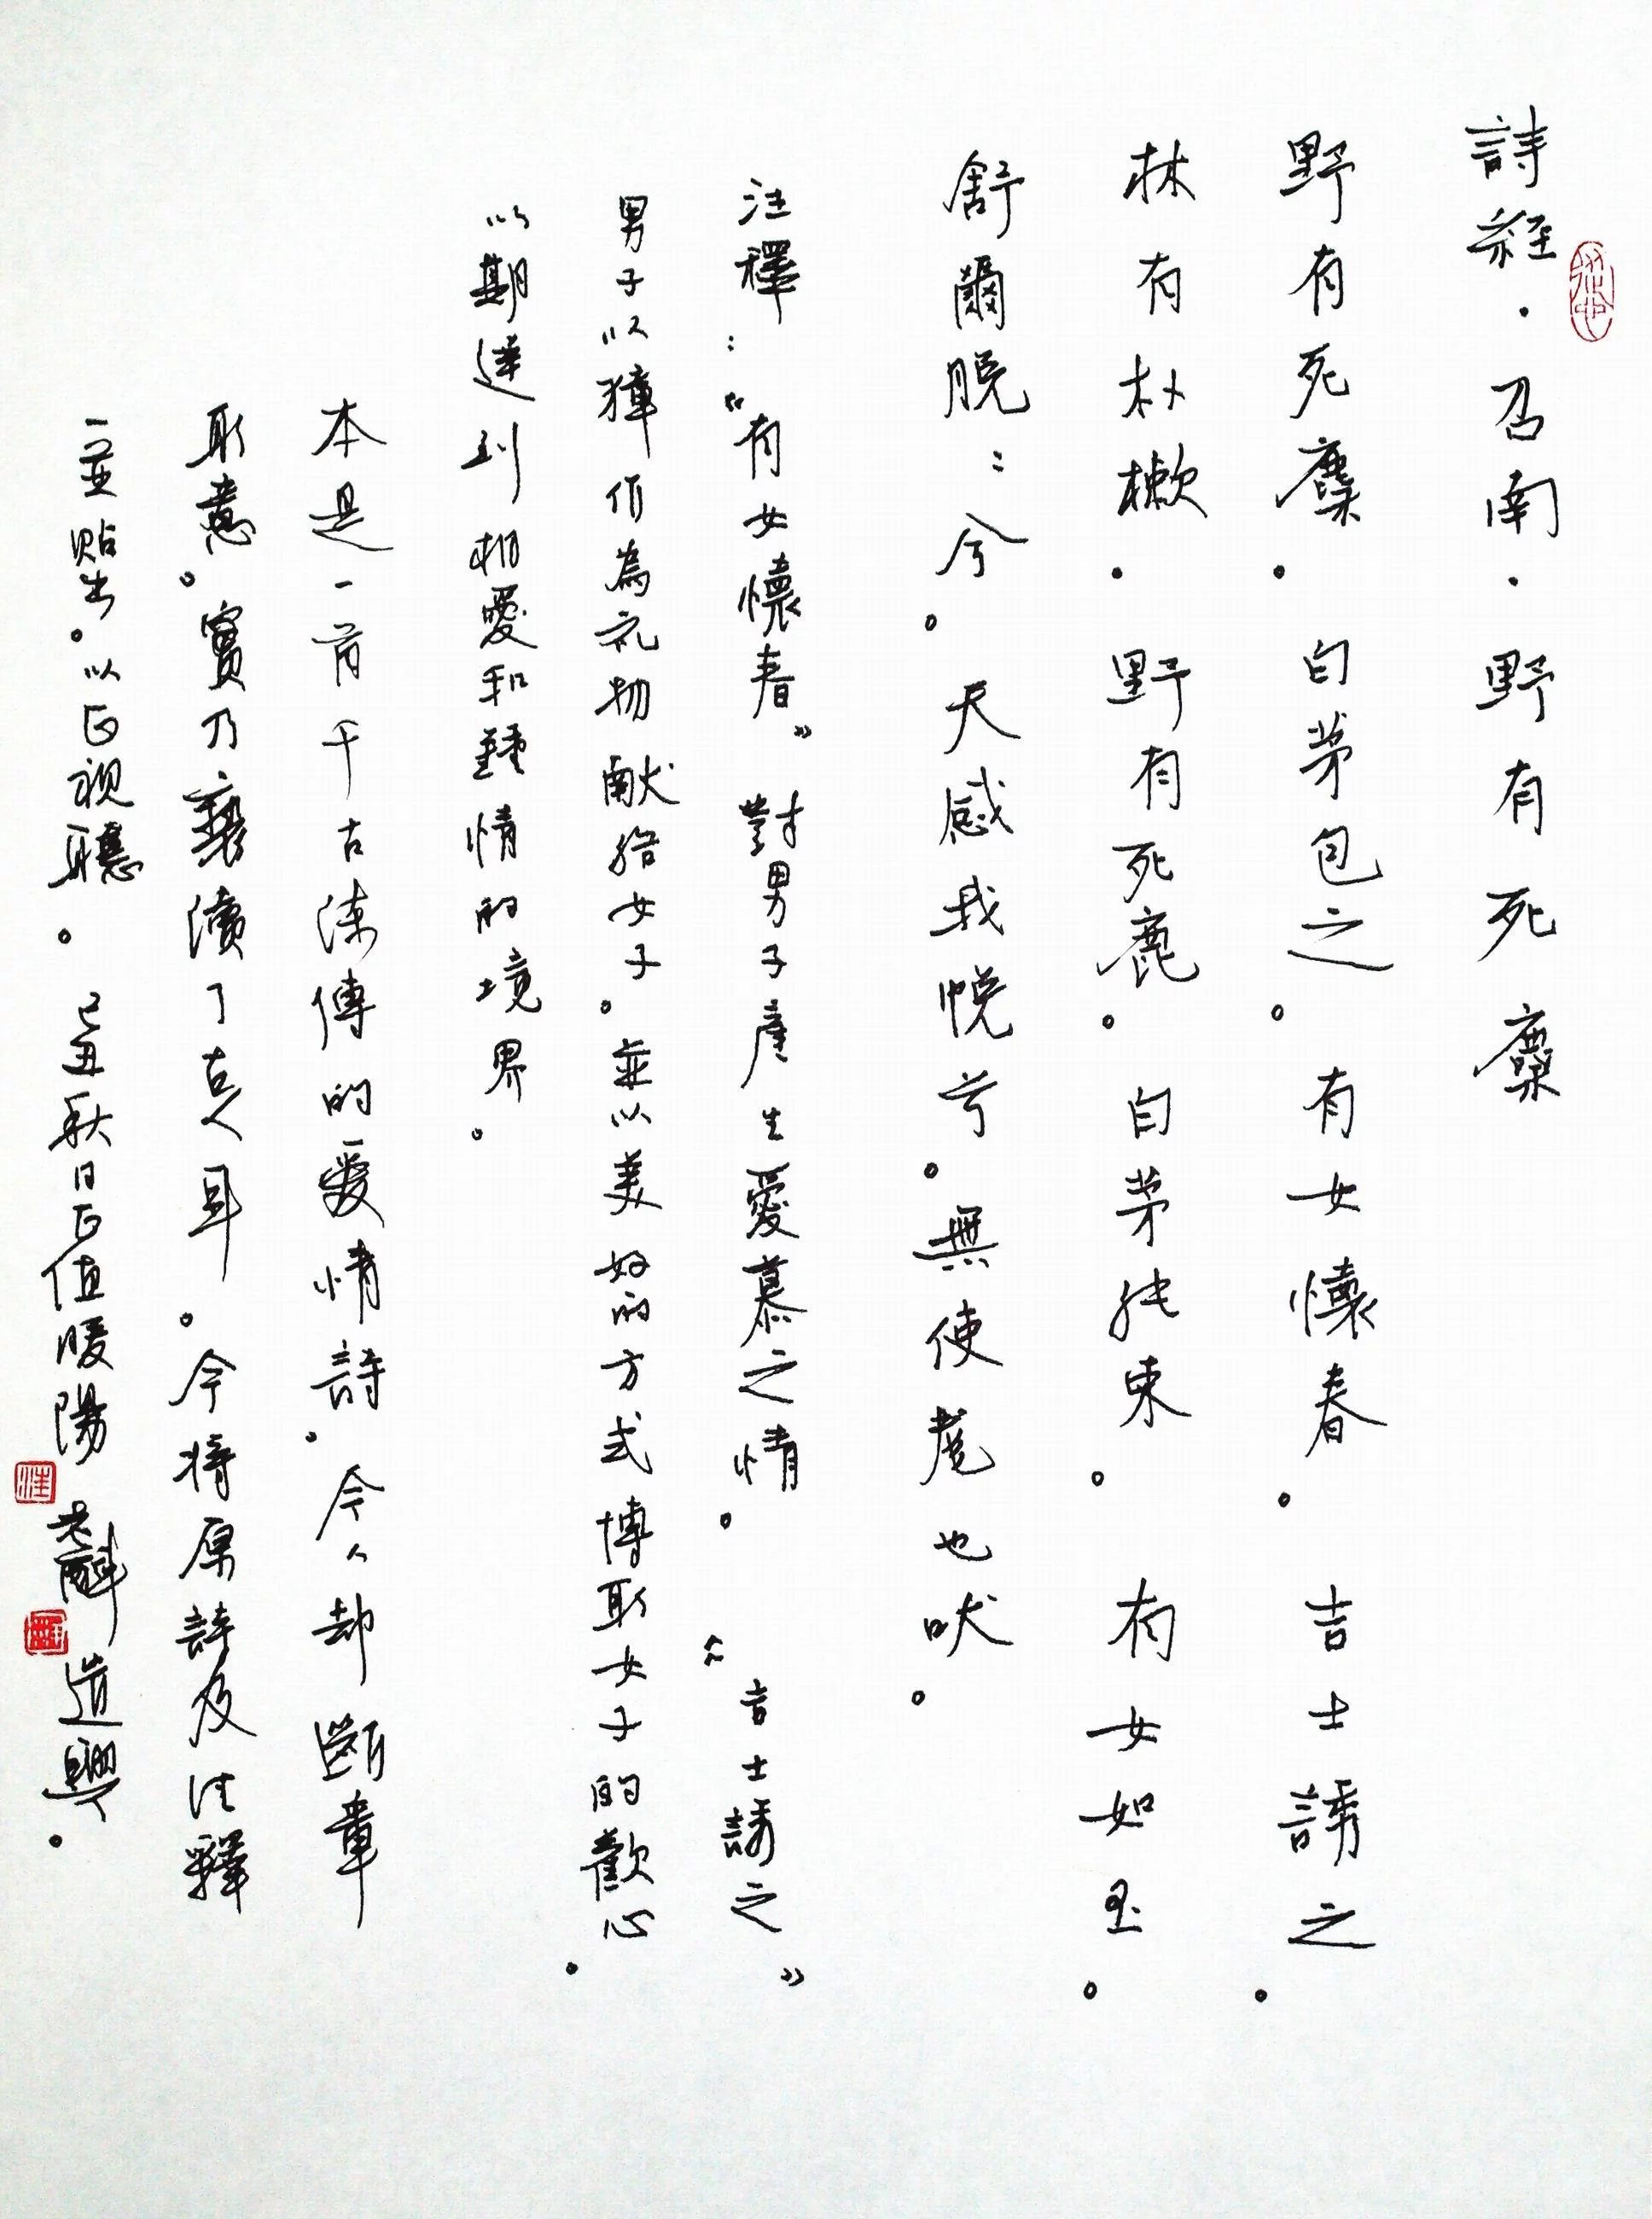 詩經·召南·野有死麇
野有死麇。白茅包之。有女懷春。吉士誘之。
林有朴樕。野有死鹿。白茅純束。有女如玉。
舒爾脫:兮。无感我帨兮。無使尨也吠。
注釋:“有女懷春”對男子產生愛慕之情。“吉士誘之”
男子以獐作為礼物献給女子。並以美好的方式博取女子的歡心。
以期達到相愛和鍾情的境界。
本是一首千古流傳的愛情詩。今人却斷章
取意。實乃褻瀆了古人耳。今将原詩及注釋
一並貼出。以正視聽。己丑秋日正值暖陽 道興。